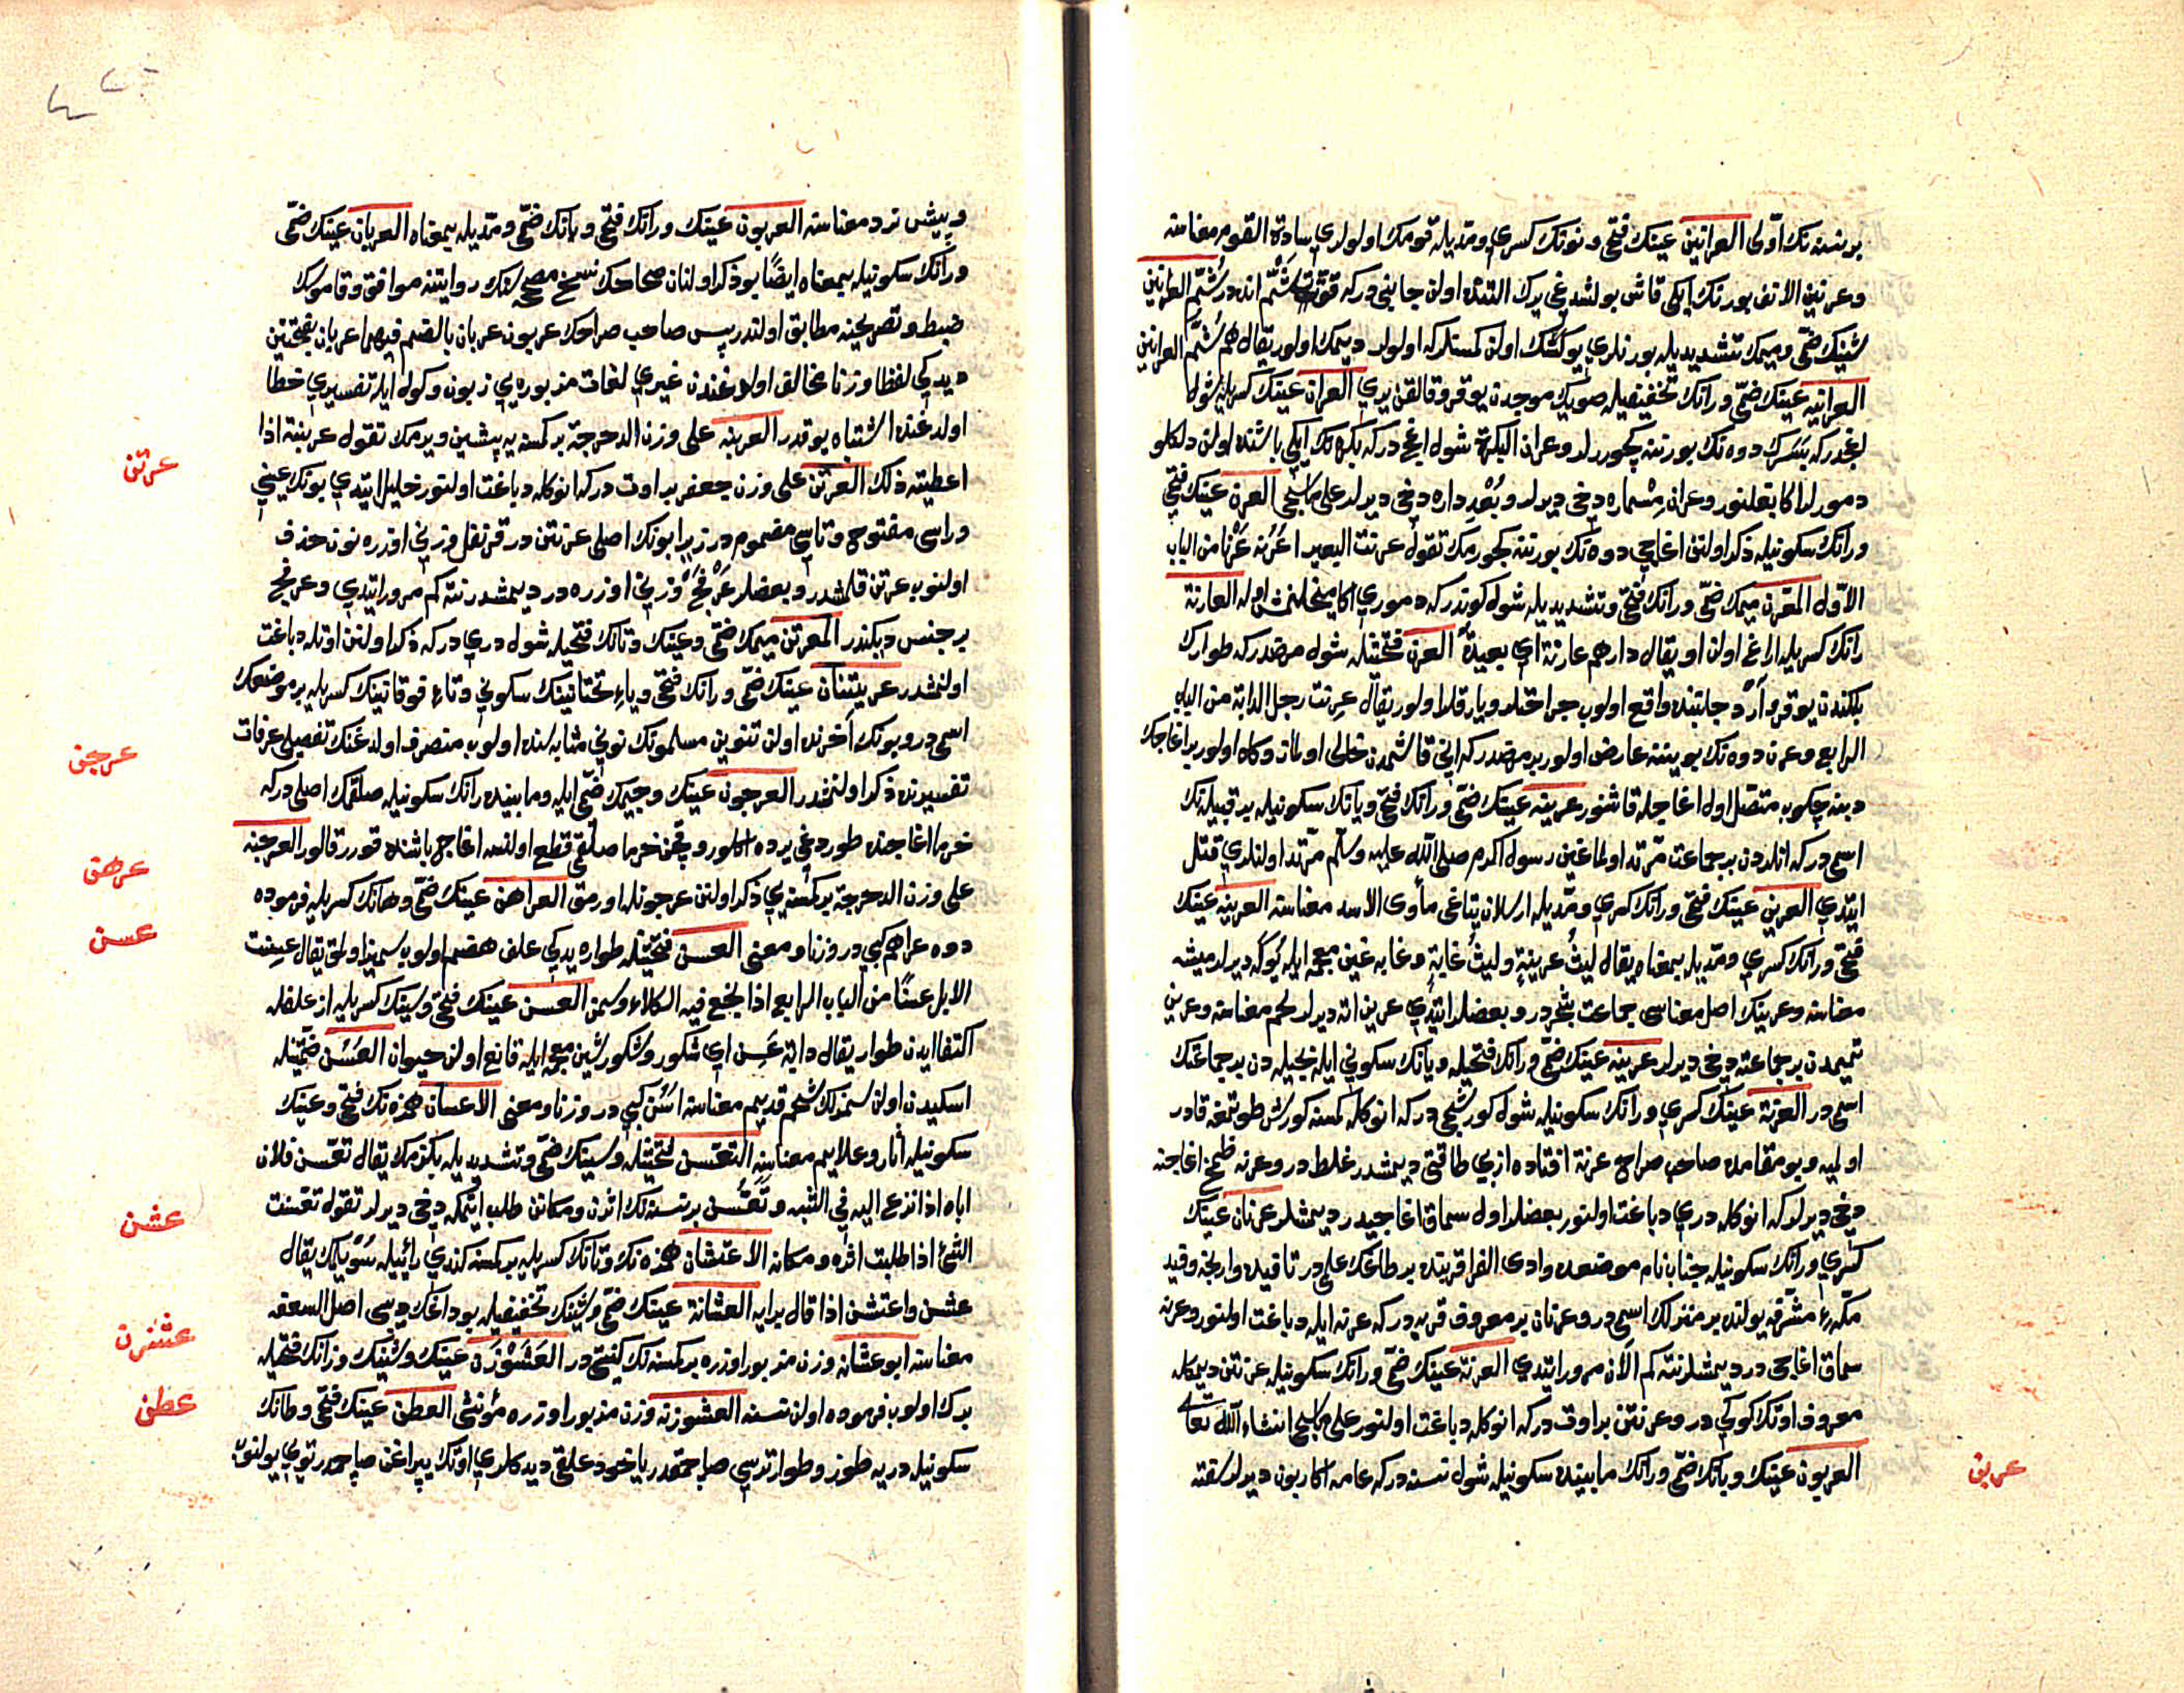 بر نسنه نك اوّلى العرانين عينك فتحى و نونك كسرى و مدّيله قومك اولولرى سادة القوم معناسنه
و عرنين الانف بورنك ايكى قاش بولشدغى يرك التنده اولن جانبى در كه قوّت شمّ انده در شمّ العرانين
شينك ضمّى و ميمك تشديديله بورنلرى يوكسك اولن كمسنلركه اولولر ديمك اولور يقال هم شمّ العرانين
العرانيه عينك ضمّى و رانك تخفيفيله صويك موجدن يوقرو قالقن يرى العران عينك كسريله شول
اغجدر كه دوه نك بورننه كچوررلر و عران البكرة شول اغجدر كه بكره نك ايكى باشنده اولن دلكلو
دمورلر اكا بغلنور و عران مسماره دخى ديرلر و بعد داره دخى ديرلر على ما سيجئ العرن عينك فتحى
و رانك سكونيله ذكر اولنن اغاجى دوه نك بورننه كچورمك تقول عرنت البعير اعرنه عرنا من الباب
الاوّل المعرّن ميمك ضمّى و رانك فتحى و تشديديله شول كوندر كه دمورى اكا ميخلنمش اوله العارنة
رانك كسريله ايراغ اولن او يقال دارهم عارنة اى بعيدة العرن فتحتينله شول مرضدر كه طوارك
بلكندن يوقرو آرد جانبنده واقع اولوب جراحتلر و يارقلر اولور يقال عرنت رجل الدابة من الباب
الرابع و عرن دوه نك بوينه عارض اولور بر مرضدر كه انى قاشمدن خالى اولماز و كاه اولور بر اغاجك
دبنه چكوب متصل اول اغاجله قاشنور عرينه عينك ضمّى و رانك فتحى و يانك سكونيله بر قبيله نك
اسمى در كه انلردن بر جماعت مرتد اولماغين رسول اكرم صلى الله عليه وسلم مرتد اولنلرى قتل
ايتدى العرين عينك فتحى و رانك كسرى و مدّيله ارسلان يتاغى مأوى الاسد معناسنه العرينه عينك
فتحى و رانك كسرى و مدّيله بمعناه يقال ليث عرينة و ليث غابة و غابه غين معجمه ايله يوكه ديرلر ميشه
معناسنه و عرينك اصل معناسى جماعت شجردر و بعضلر ايتدى عرين اته ديرلر لحم معناسنه و عرين
تميمدن بر جماعته دخى ديرلر عرينه عينك ضمّى و رانك فتحيله و يانك سكونى ايله بجيله دن بر جماعتك
اسمى در العرنة عينك كسرى و رانك سكونيله شول كورشجى در كه انوكله كمسنه كورش طوتمغه قادر
اولميه و بو مقامده صاحب صراح عرنة افتاده ازبى طاقتى ديمشدر غلطدر و عرنه ظمخ اغاجنه
دخى ديرلر كه انوكله درى دباغت اولنور بعضلر اول سماق اغاجيدر ديمشلر عرنان عينك
كسرى و رانك سكونيله جناب نام موضعده وادى القرا قربنده بر طاغك علمى در تا فيده وارنجه و فيد
مكّهء مشرّفه يولنده بر منزلك اسمى در و عرنان بر معروف قريه در كه عرنه ايله دباغت اولنور و عرنه
سماق اغاجى در ديمشلرنته كم الآن مرور ايتدى العرنة عينك ضمّى و رانك سكونيله عرنتن ديمكله
معروف اوتك كوكى در و عرنتن بر اوت در كه انوكله دباغت اولنور على ما سيجئ انشاء الله تعالى
العربون عينك و بانك ضمّى و رانك مابينده سكونيله شول نسنه در كه عامه اكا ربون ديرلر سفته
عربن
و پيش نرد معناسنه العربون عينك و رانك فتحى و بانك ضمّى و مدّيله بمعناه العربان عينك ضمّى
و رانك سكونيله بمعناه ايضًا بو ذكر اولنان صحاحك نسخ مصححه سنك روايتنه موافق و قاموسك
ضبط و تصريحنه مطابق اولنلردر پس صاحب صراحك عربون عربان بالضم فيهما عربان بفتحتين
ديدكى لفظا و وزنا مخالف اولدغندن غيرى لغات مزبوره يى زبون و كوله ايله تفسيرى خطا
اولدغنده اشتباه يوقدر العربنه على وزن الدحرجة بر كمسه يه پيشين ويرمك تقول عربنته اذا
اعطيته ذلك العرتن على وزن جعفر بر اوت در كه انوكله دباغت اولنور خليل ايتدى بونك عينى
و راسى مفتوح و تاسى مضموم در زيرا بونك اصلى عرنتن در قرنفل وزنى اوزره نون حذف
اولنوب عرتن قلمشدر و بعضلر عرفج وزنى اوزره در ديمشدر نته كم مرور ايتدى و عرفج
بر جنس ديكندر المعرتن ميمك ضمّى و عينك و تانك فتحيله شول درى در كه ذكر اولنن اوتله دباغت
اولنمشدر عريتنان عينك ضمّى و رانك فتحى و ياء تحتانينك سكونى و تاء فوقانينك كسريله بر موضعك
اسمى در و بونك آخرنده اولن تنوين مسلمونك نونى مثابه سنده اولوب منصرف اولدغنك تفصيلى عرفات
تفسيرنده ذكر اولنمشدر العرجون عينك و جيمك ضمّى ايله و مابينده رانك سكونيله صلقمك اصلى در كه
خرما اغاجنده طوردغى يرده اكلور و چقن خرما صلقمى قطع اولنسه اغاجى باشنده قورر قالور العرجنه
على وزن الدحرجة بر كمسه يى ذكر اولنن عرجونله اورمق العراهن عينك ضمّى و هانك كسريله فرموده
دوه عراهم كبى در وزنا و معنى العسن فتحتينله طوارہ يدكى علف هضم اولوب سميز اولمق يقال عسنت
الابل عسنًا من الباب الرابع اذا نجع فيه الكلاء و سمن العسن عينك فتحى و سينك كسريله از علفله
اكتفا ايدن طوار يقال دابة عسن اى شكور و شكور شين معجمه ايله قانع اولن حيوان العسن ضمّتينله
اسكيدن اولن سمزلك شحم قديم معناسنه اسن كبى در وزنا و معنى الاعسان همزه نك فتحى و عينك
سكونيله آثار و علايم معناسنه التعسن فتحتينله و سينك ضمّى و تشديديله بكزمك يقال تعسن فلان
اباه اذا نزع اليه فى الشبه و تعسن بر نسنه نك اثرن و مكانن طلب ايتمكه دخى ديرلر تقول تعسنت
الشئ اذا طلبت اثره و مكانه الاعتشان همزه نك و تانك كسريله بر كمسه كندى رائيله سويلمك يقال
عشن و اعتشن اذا قال برأيه العشانة عينك ضمّى و شينك تخفيفيله بوداغك ديبى اصل السعفه
معناسنه ابو عشانه وزن مزبور اوزره بر كمسه نك كنيتى در العشوزن عينك و شينك و زانك فتحيله
برك اولوب فرموده اولن نسنه العشوزنه وزن مزبور اوزره مؤنثى العطن عينك فتحى و طانك
سكونيله در يه طوز و طوار ترسى صاچمقدر ياخود علقى ديدكلرى اوتك يپراغن صاچمقدر تويى يولنوب
عرتن
عرجن
عرهن
عسن
عشن
عشزن
عطن